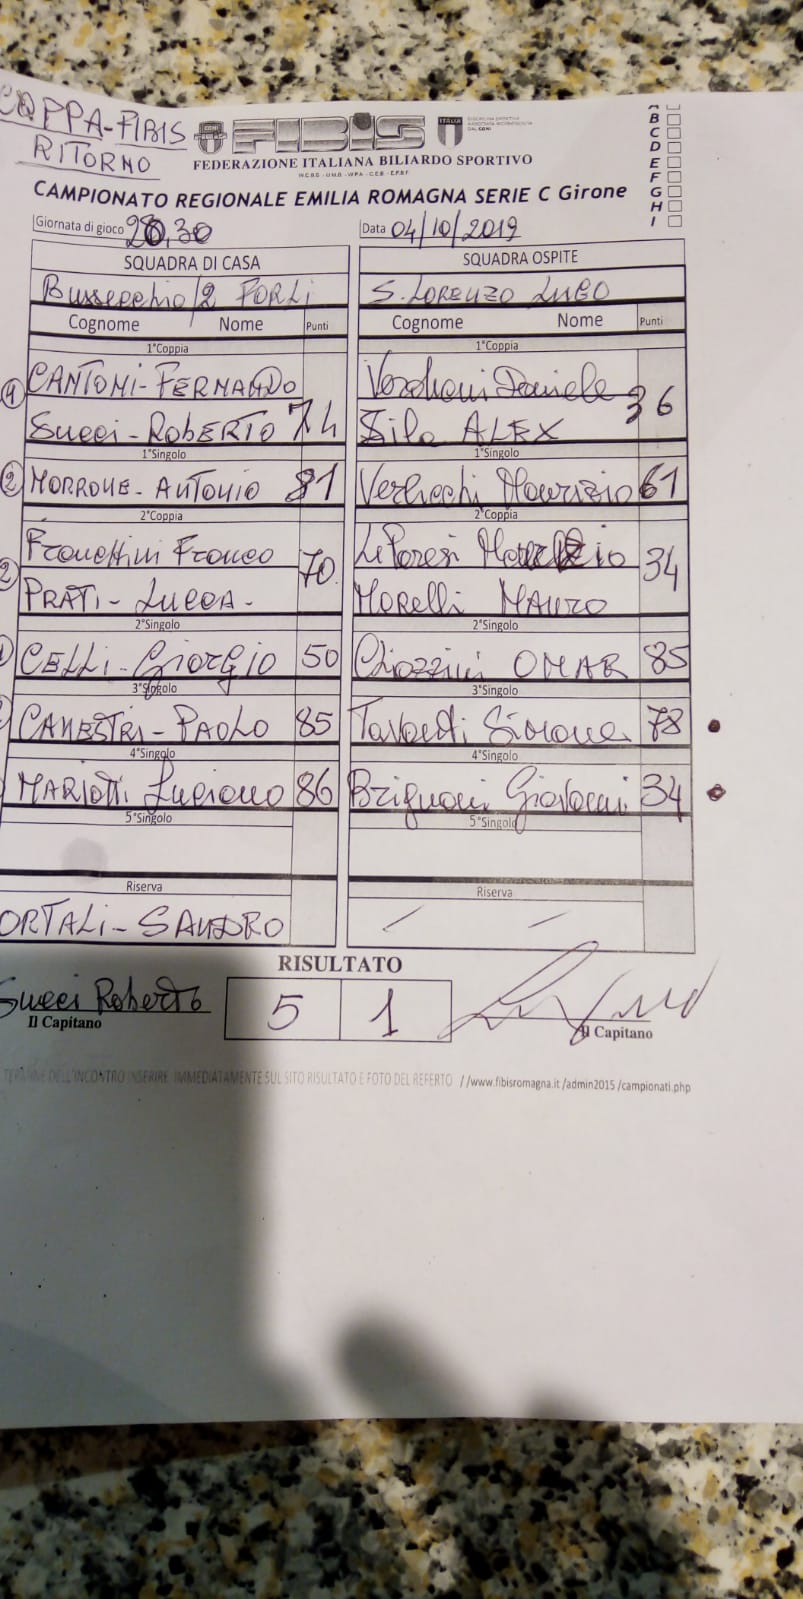 COPPA-FIBIS
RITORNO
FIBIS
ITALIA
FEDERAZIONE ITALIANA BILIARDO SPORTIVO
CAMPIONATO REGIONALE EMILIA ROMAGNA SERIE C Girone
B
C
D
E
F
G
H
I
Giornata di gioco 20,30 Data 04/10/2019
SQUADRA DI CASA SQUADRA OSPITE
Bussecchio/2 FORLI S. LORENZO LUGO
Cognome Nome Punti Cognome Nome Punti
1°Coppia 1°Coppia
CANTONI-FERNANDO Daniele
Succi-ROBERTO 74 ALEX 36
1°Singolo 1°Singolo
2 MORRONE-ANTONIO 81 Verlicchi Maurizio 61
2°Coppia 2°Coppia
Franco
PRATI-LUCCA- 70 MORElli MAURO 34
2°Singolo 2°Singolo
CELLI-GiorGio 50 OMAR 85
3°Singolo 3°Singolo
CANESTRI-PAOLO 85 Simone 78
4°Singolo 4°Singolo
MARIOTTI Luciano 86 Brignani Giovanni 34
5°Singolo 5°Singolo
Riserva Riserva
ORTALI-SANDRO
RISULTATO
Succi Roberto 5 1
Il Capitano Il Capitano
TERMINE DELL'INCONTRO INSERIRE IMMEDIATAMENTE SUL SITO RISULTATO E FOTO DEL REFERTO //www.fibisromagna.it /admin2015 /campionati.php